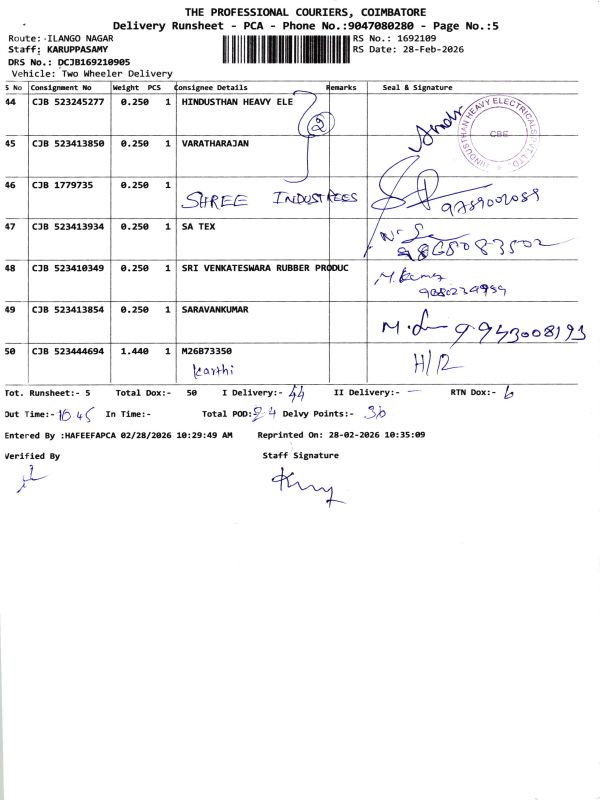 THE PROFESSIONAL COURIERS, COIMBATORE
Delivery Runsheet - PCA - Phone No.:9047080280 - Page No.:5
Route: ILANGO NAGAR RS No.: 1692109
Staff: KARUPPASAMY RS Date: 28-Feb-2026
DRS No.: DCJB169210905
Vehicle: Two Wheeler Delivery
S No Consignment No Weight PCS Consignee Details Remarks Seal & Signature
44 CJB 523245277 0.250 1 HINDUSTHAN HEAVY ELE
2
HINDUSTHAN HEAVY ELECTRICALS PVT. LTD.
CBE
45 CJB 523413850 0.250 1 VARATHARAJAN
46 CJB 1779735 0.250 1
SHREE INDUSTREES 9789002089
47 CJB 523413934 0.250 1 SA TEX
9865083502
48 CJB 523410349 0.250 1 SRI VENKATESWARA RUBBER PRODUC
49 CJB 523413854 0.250 1 SARAVANKUMAR
9943008193
50 CJB 523444694 1.440 1 M26B73350
Karthi H/R
Tot. Runsheet:- 5 Total Dox:- 50 I Delivery:- 44 II Delivery:- — RTN Dox:- 6
Out Time:- 10.45 In Time:- Total POD: Delvy Points:- 30
Entered By :HAFEEFAPCA 02/28/2026 10:29:49 AM Reprinted On: 28-02-2026 10:35:09
Verified By Staff Signature